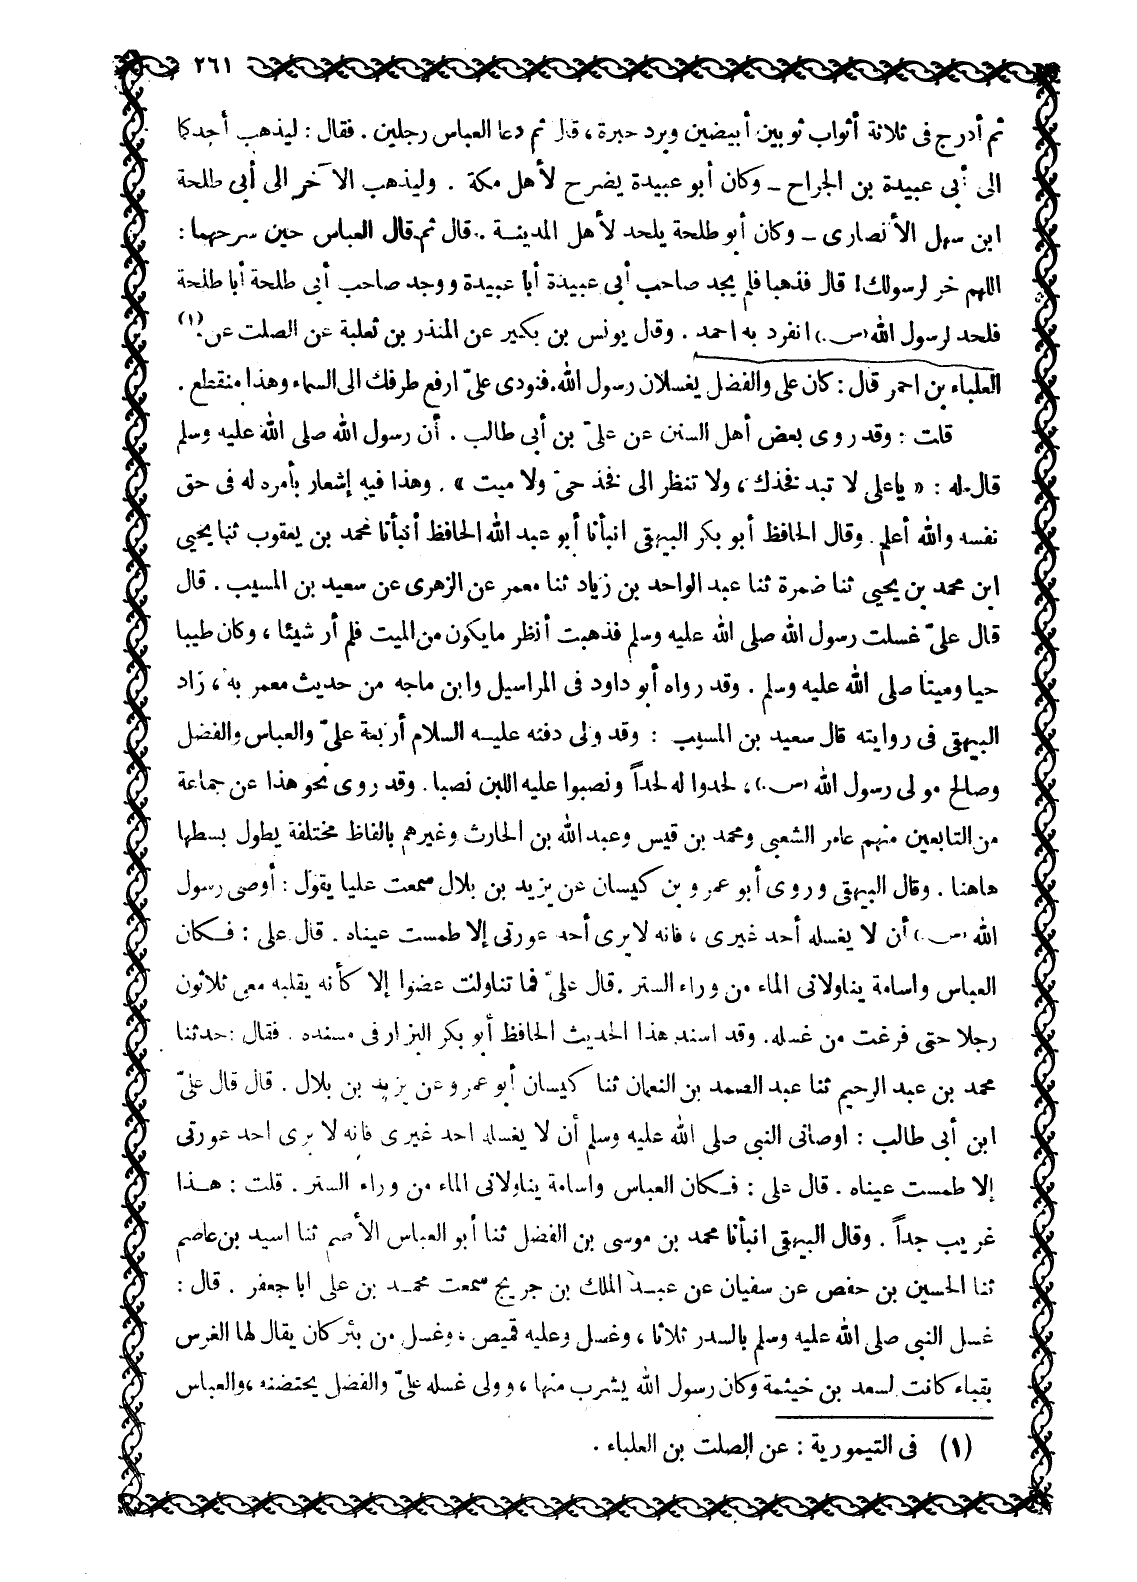 ٢٦١
ثم أدرج فى ثلاثة أثواب ثوبين أبيضين وبرد حبرة ، قال ثم دعا العباس رجلين . فقال : ليذهب أحدكما
الى أبى عبيدة بن الجراح ــ وكان أبو عبيدة يضرح لأهل مكة . وليذهب الآخر الى أبى طلحة
ابن سهل الأنصارى ــ وكان أبو طلحة يلحد لأهل المدينة . قال ثم قال العباس حين سرحهما :
اللهم خر لرسولك! قال فذهبا فلم يجد صاحب أبى عبيدة أبا عبيدة ووجد صاحب أبى طلحة أبا طلحة
فلحد لرسول الله (ص.) انفرد به احمد . وقال يونس بن بكير عن المنذر بن ثعلبة عن الصلت عن (١)
العلباء بن احمر قال : كان على والفضل يغسلان رسول الله. فنودى علىّ ارفع طرفك الى السماء وهذا منقطع .
قلت : وقد روى بعض أهل السنن عن علىّ بن أبى طالب . أن رسول الله صلى الله عليه وسلم
قال له : « ياعلى لا تبد فخذك ، ولا تنظر الى فخذ حىّ ولا ميت » . وهذا فيه إشعار بأمره له فى حق
نفسه والله أعلم . وقال الحافظ أبو بكر البيهقى انبأنا أبو عبد الله الحافظ أنبأنا محمد بن يعقوب ثنا يحيى
ابن محمد بن يحيى ثنا ضمرة ثنا عبد الواحد بن زياد ثنا معمر عن الزهرى عن سعيد بن المسيب . قال
قال علىّ غسلت رسول الله صلى الله عليه وسلم فذهبت أنظر مايكون من الميت فلم أر شيئا ، وكان طيبا
حيا وميتا صلى الله عليه وسلم . وقد رواه أبو داود فى المراسيل وابن ماجه من حديث معمر به ، زاد
البيهقى فى روايته قال سعيد بن المسيب : وقد ولى دفنه عليه السلام أربعة علىّ والعباس والفضل
وصالح مولى رسول الله (ص.) ، لحدوا له لحداً ونصبوا عليه اللبن نصبا . وقد روى نحو هذا عن جماعة
من التابعين منهم عامر الشعبى ومحمد بن قيس وعبد الله بن الحارث وغيرهم بالفاظ مختلفة يطول بسطها
هاهنا . وقال البيهقى وروى أبو عمرو بن كيسان عن يزيد بن بلال سمعت عليا يقول : أوصى رسول
الله (ص.) أن لا يغسله أحد غيرى ، فانه لا يرى أحد عورتى إلا طمست عيناه . قال على : فكان
العباس واسامة يناولانى الماء من وراء الستر . قال علىّ فما تناولت عضوا إلا كأنه يقلبه معى ثلاثون
رجلا حتى فرغت من غسله . وقد اسند هذا الحديث الحافظ أبو بكر البزار فى مسنده . فقال : حدثنا
محمد بن عبد الرحيم ثنا عبد الصمد بن النعمان ثنا كيسان أبو عمرو عن يزيد بن بلال . قال قال علىّ
ابن أبى طالب : اوصانى النبى صلى الله عليه وسلم أن لا يغسله احد غيرى فانه لا يرى احد عورتى
إلا طمست عيناه . قال على : فكان العباس واسامة يناولانى الماء من وراء الستر . قلت : هذا
غريب جداً . وقال البيهقى انبأنا محمد بن موسى بن الفضل ثنا أبو العباس الأصم ثنا اسيد بن عاصم
ثنا الحسين بن حفص عن سفيان عن عبد الملك بن جريج سمعت محمد بن على ابا جعفر . قال :
غسل النبى صلى الله عليه وسلم بالسدر ثلاثا ، وغسل وعليه قميص ، وغسل من بئر كان يقال لها الغرس
بقباء كانت لسعد بن خيثمة وكان رسول الله يشرب منها ، وولى غسله علىّ والفضل يحتضنه ، والعباس
(١) فى التيمورية : عن الصلت بن العلباء .